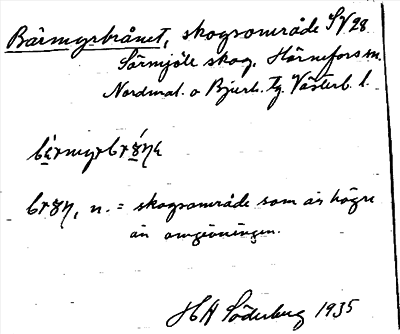 Bärmyrbrånet, skogsområde SV 28
Sörmjöle skog, Hörnefors sn.
Nordmal. o Bjurh. tg. Västerb. l.
brön, n. = skogsområde som är högre
än omgivningen.
H A Söderberg 1935